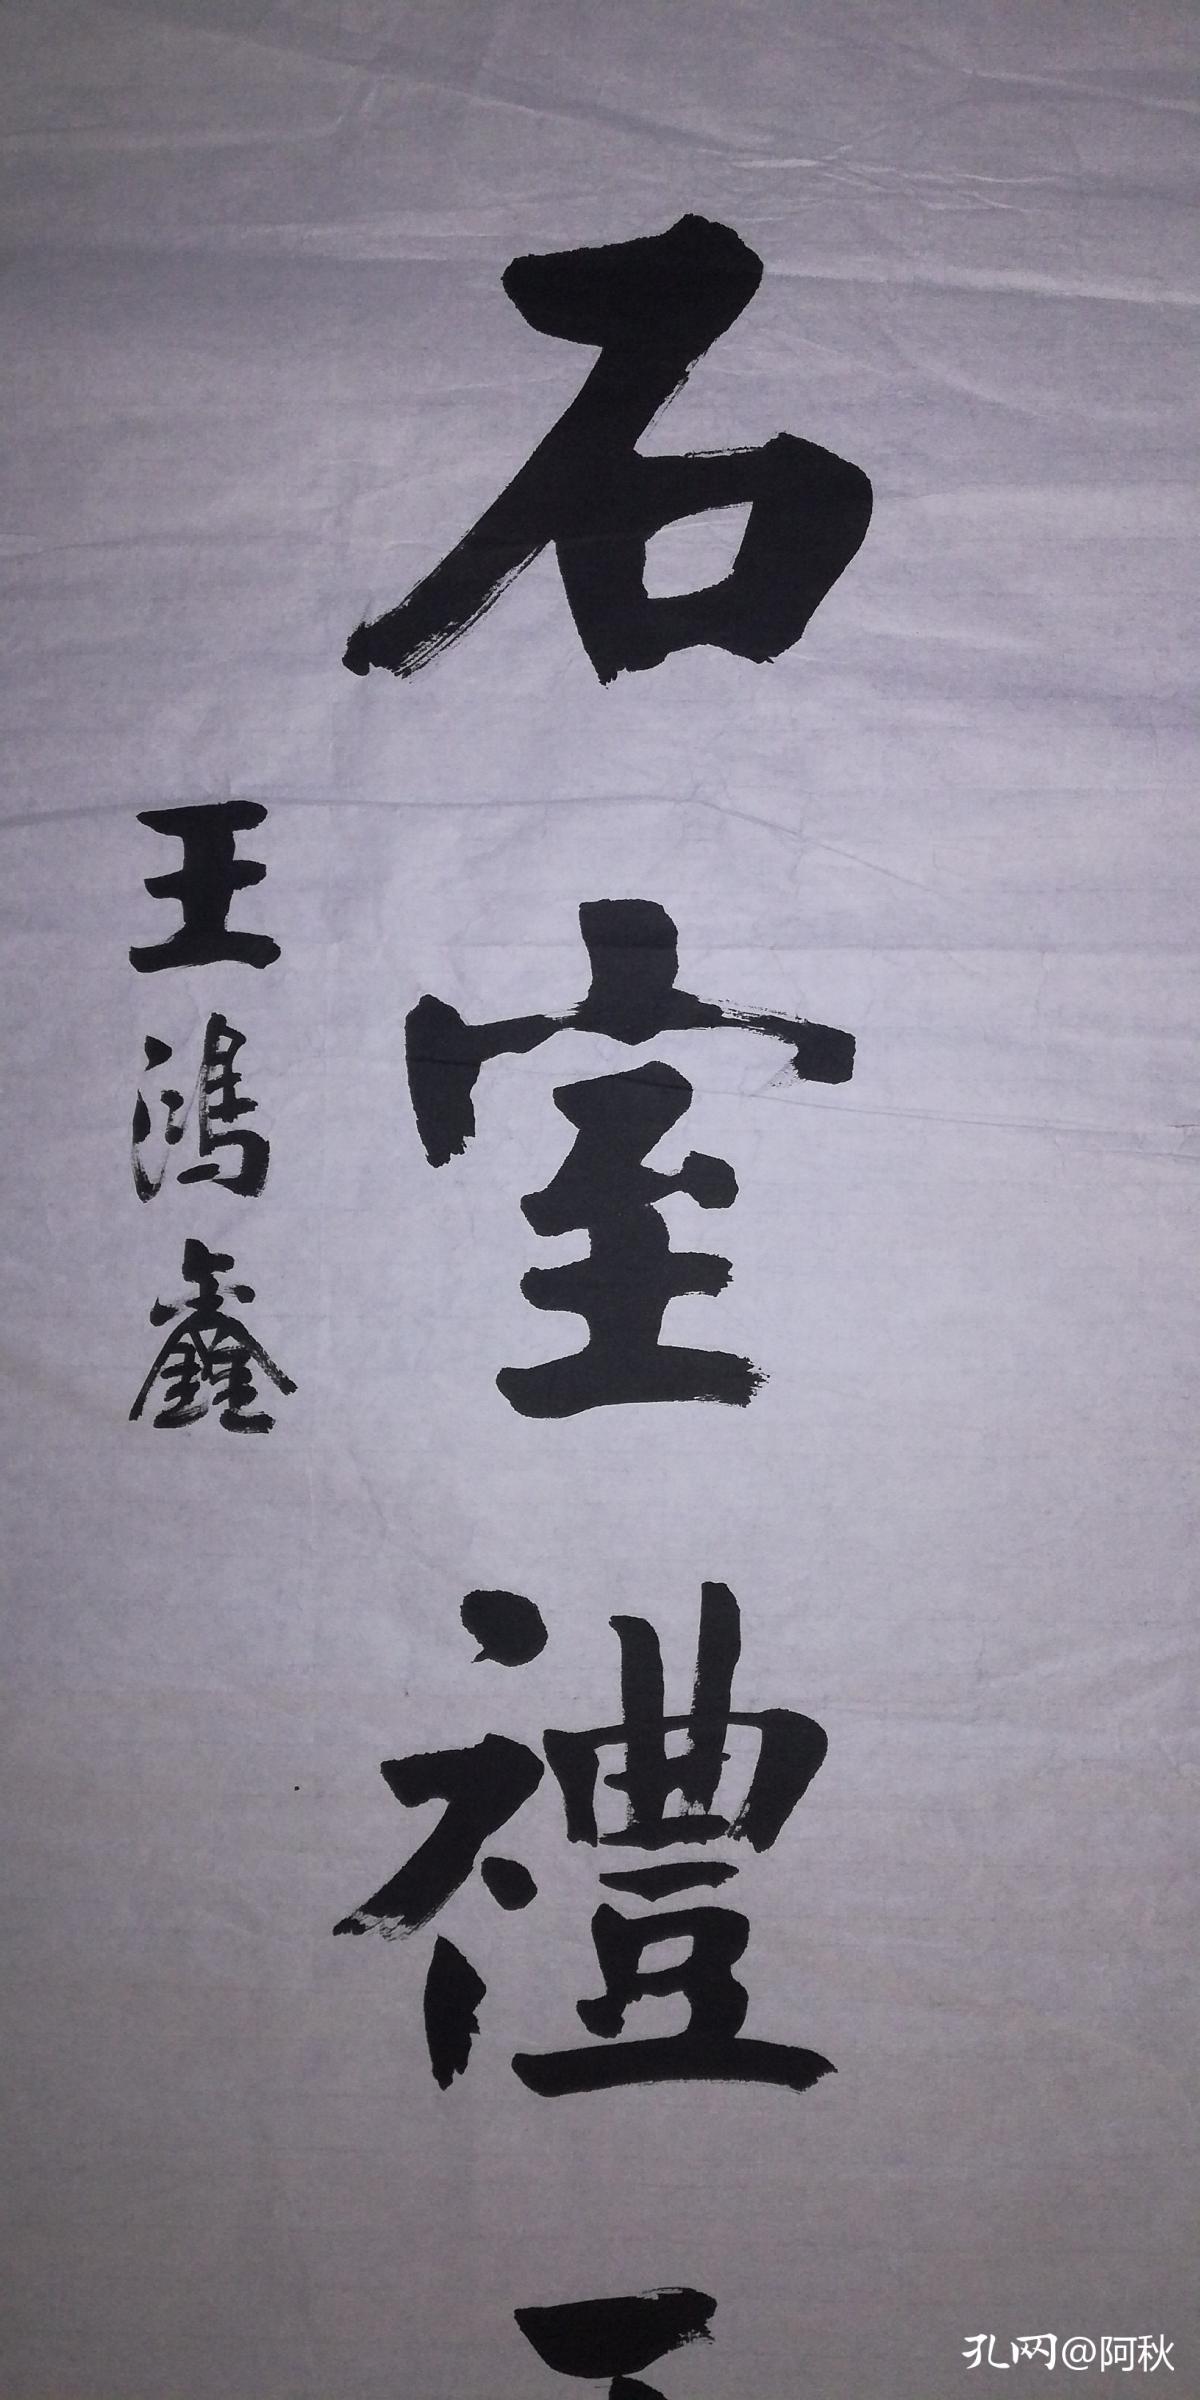 石室禮
王鴻鑫
孔网@阿秋